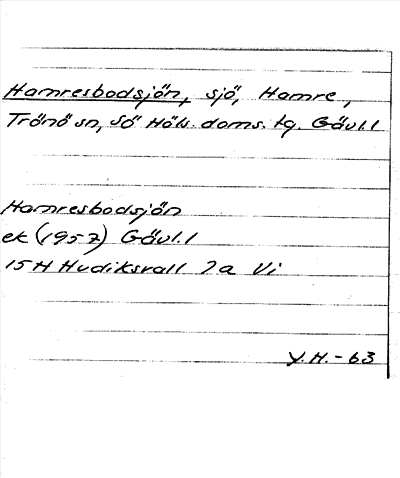 Hamresbodsjön, sjö, Hamre,
Trönö sn, Sö Häls. doms. tg. Gävl.l
Hamresbodsjön
ek (1957) Gävl.l
15H Hudiksvall 7a Vi
Y.H.-63